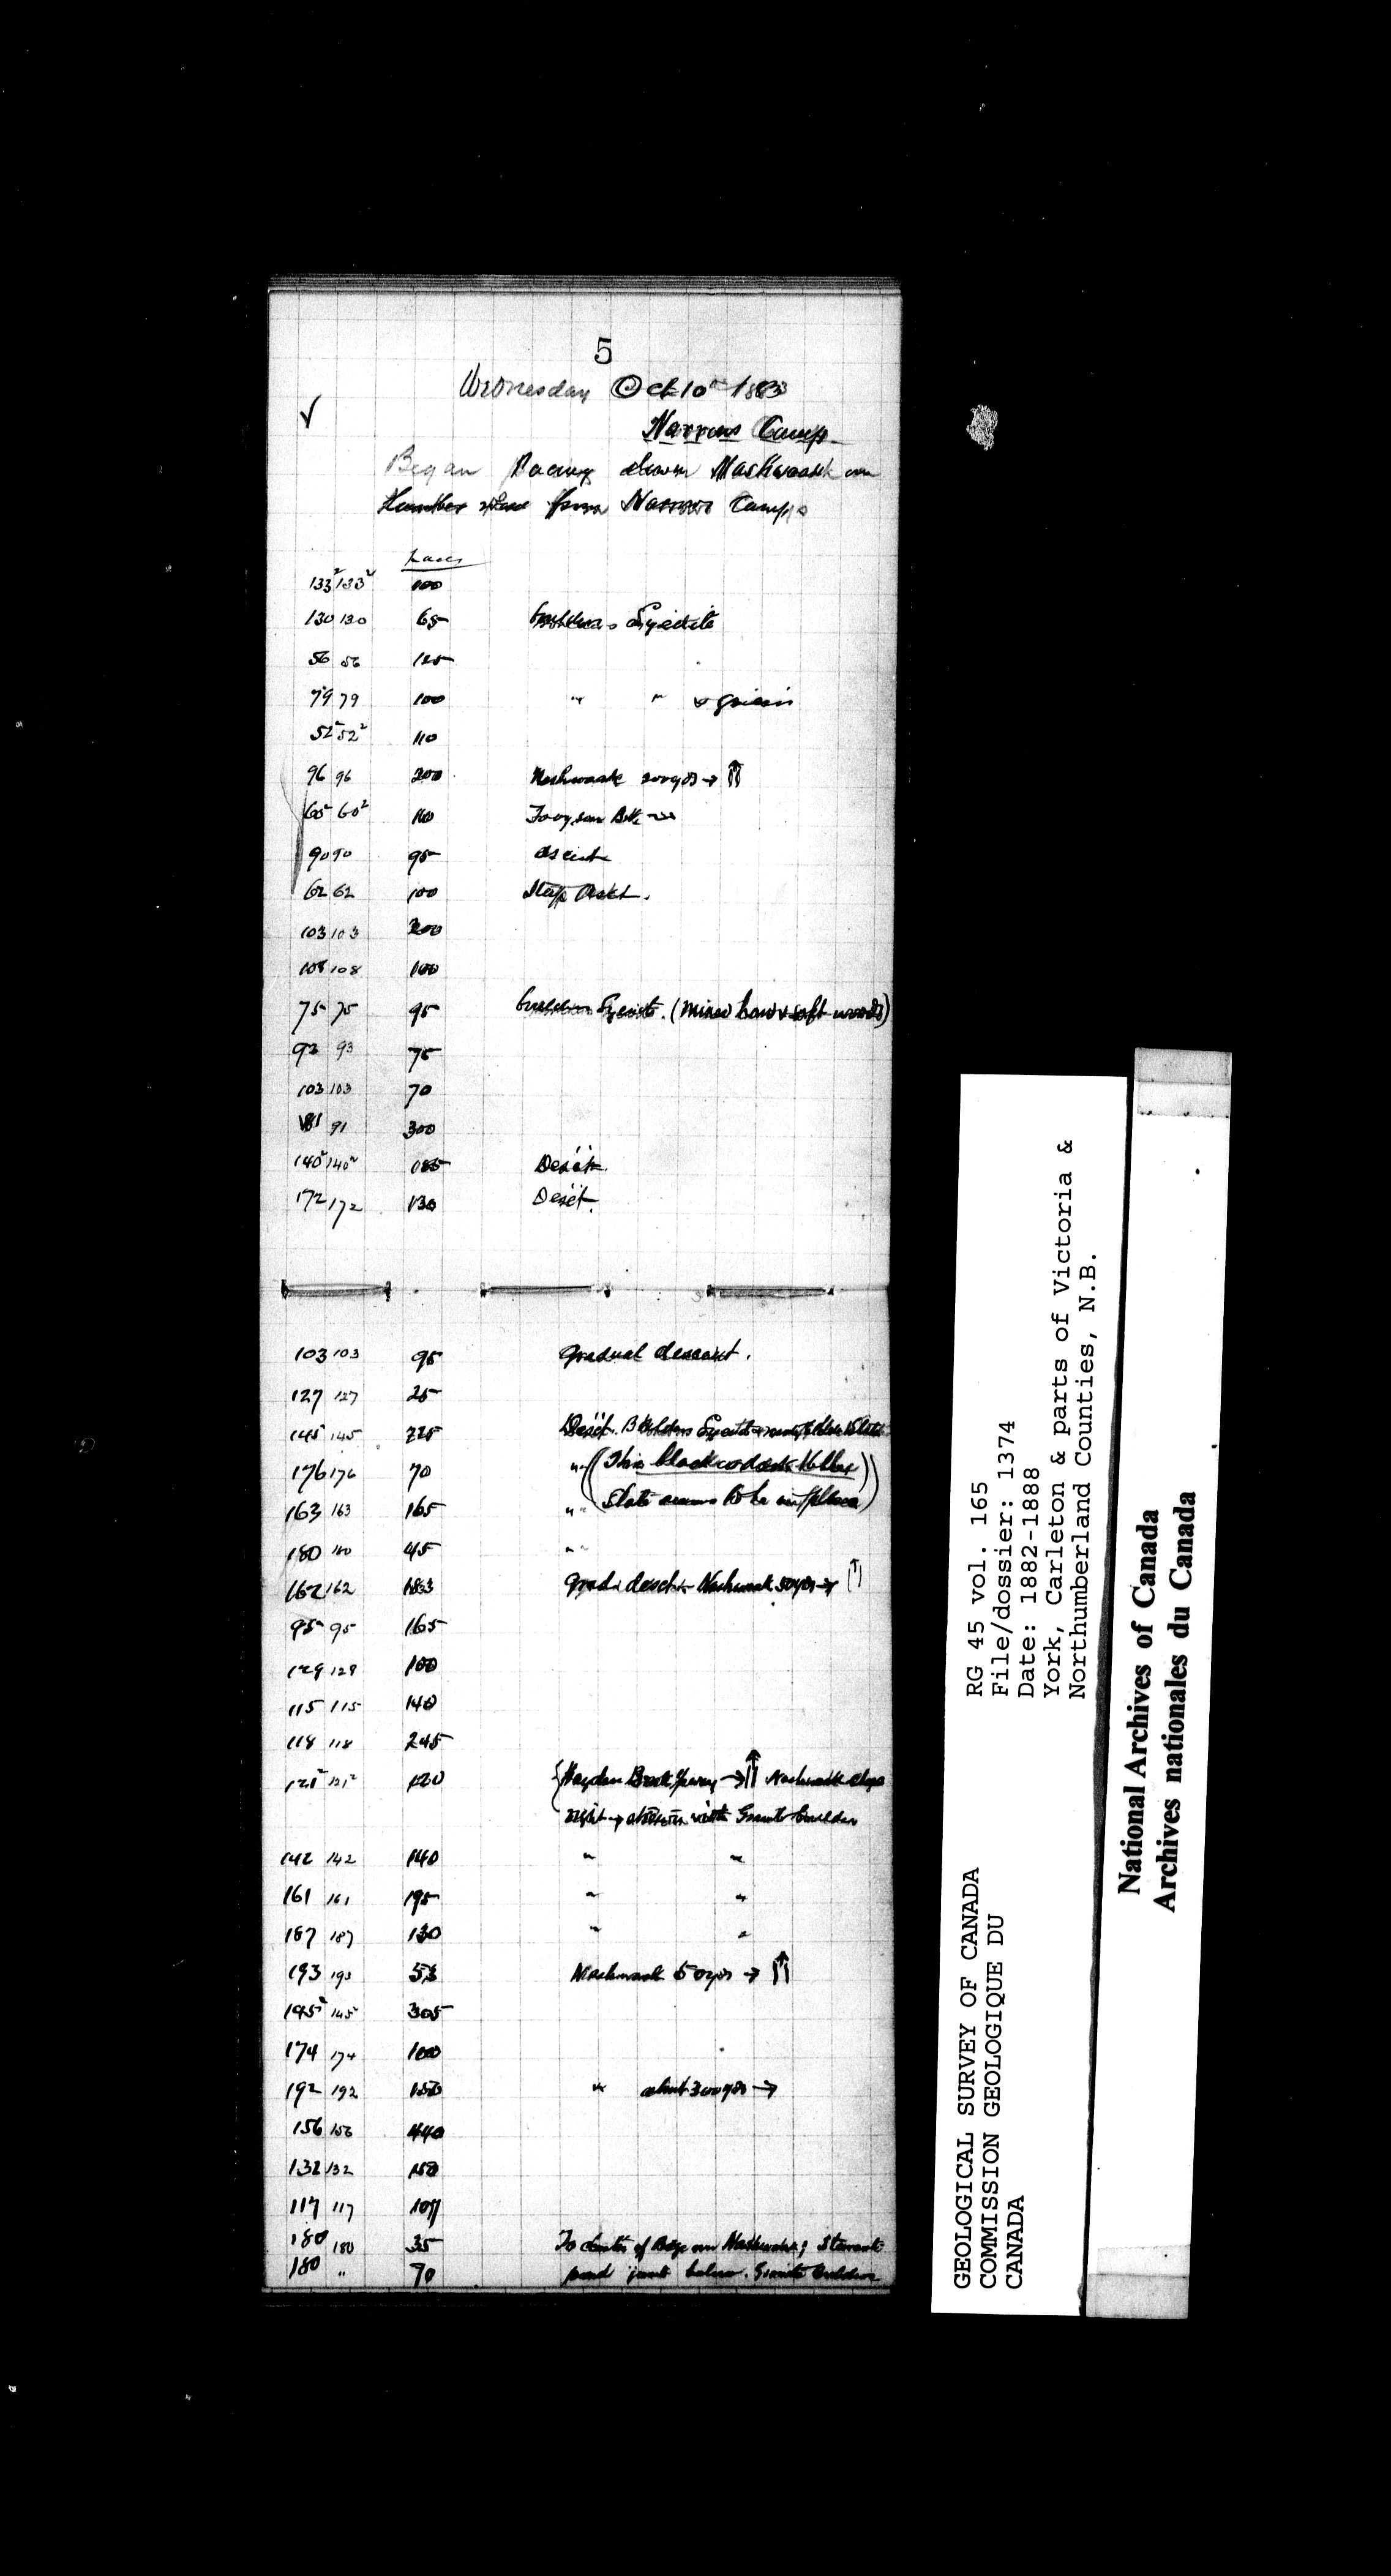 5
Wednesday Oct 10th 1883
✓
Narrows Camp
Began Pacing down Nashwaak on
Lumber Road from Narrows Camp
Paces
133½ 133½ 100
130 130 65 boulders Syenite
56 56 125
79 79 100 " " & gneiss
52½ 52½ 110
96 96 200 Nashwaak 200 yds → ⇑
60½ 60½ 110
90 90 95 Ascent
62 62 100 Steep Ascet.
103 103 200
108 108 100
75 75 95 boulders Syenite. (mixed hard & soft woods)
93 93 75
103 103 70
91 300
140½ 140½ 185 Descet.
172 172 130 Descet.
103 103 95 gradual descent.
127 127 25
145 145 225 Descet. Boulders Syenite
176 176 70 " (This black
163 163 165 " Slate seems to be in place)
180 180 45 "
162 162 183 Grad. descet. Nashwaak 50 yds → ⇑
95 95 165
129 129 100
115 115 140
118 118 245
121½ 121½ 120 {Hayden Brook → ⇑ Nashwaak
with Granite boulders
142 142 140 " "
161 161 195 " "
187 187 130 " "
193 193 53 Nashwaak 50 yds → ⇑
145 145 305
174 174 100
192 192 150 " about 300 yds →
156 156 440
132 132 150
117 117 107
180 180 35 To center of Bdge on Nashwaak;
180 " 70 pond just below. Granite boulders
GEOLOGICAL SURVEY OF CANADA
COMMISSION GEOLOGIQUE DU
CANADA
RG 45 vol. 165
File/dossier: 1374
Date: 1882-1888
York, Carleton & parts of Victoria &
Northumberland Counties, N.B.
National Archives of Canada
Archives nationales du Canada